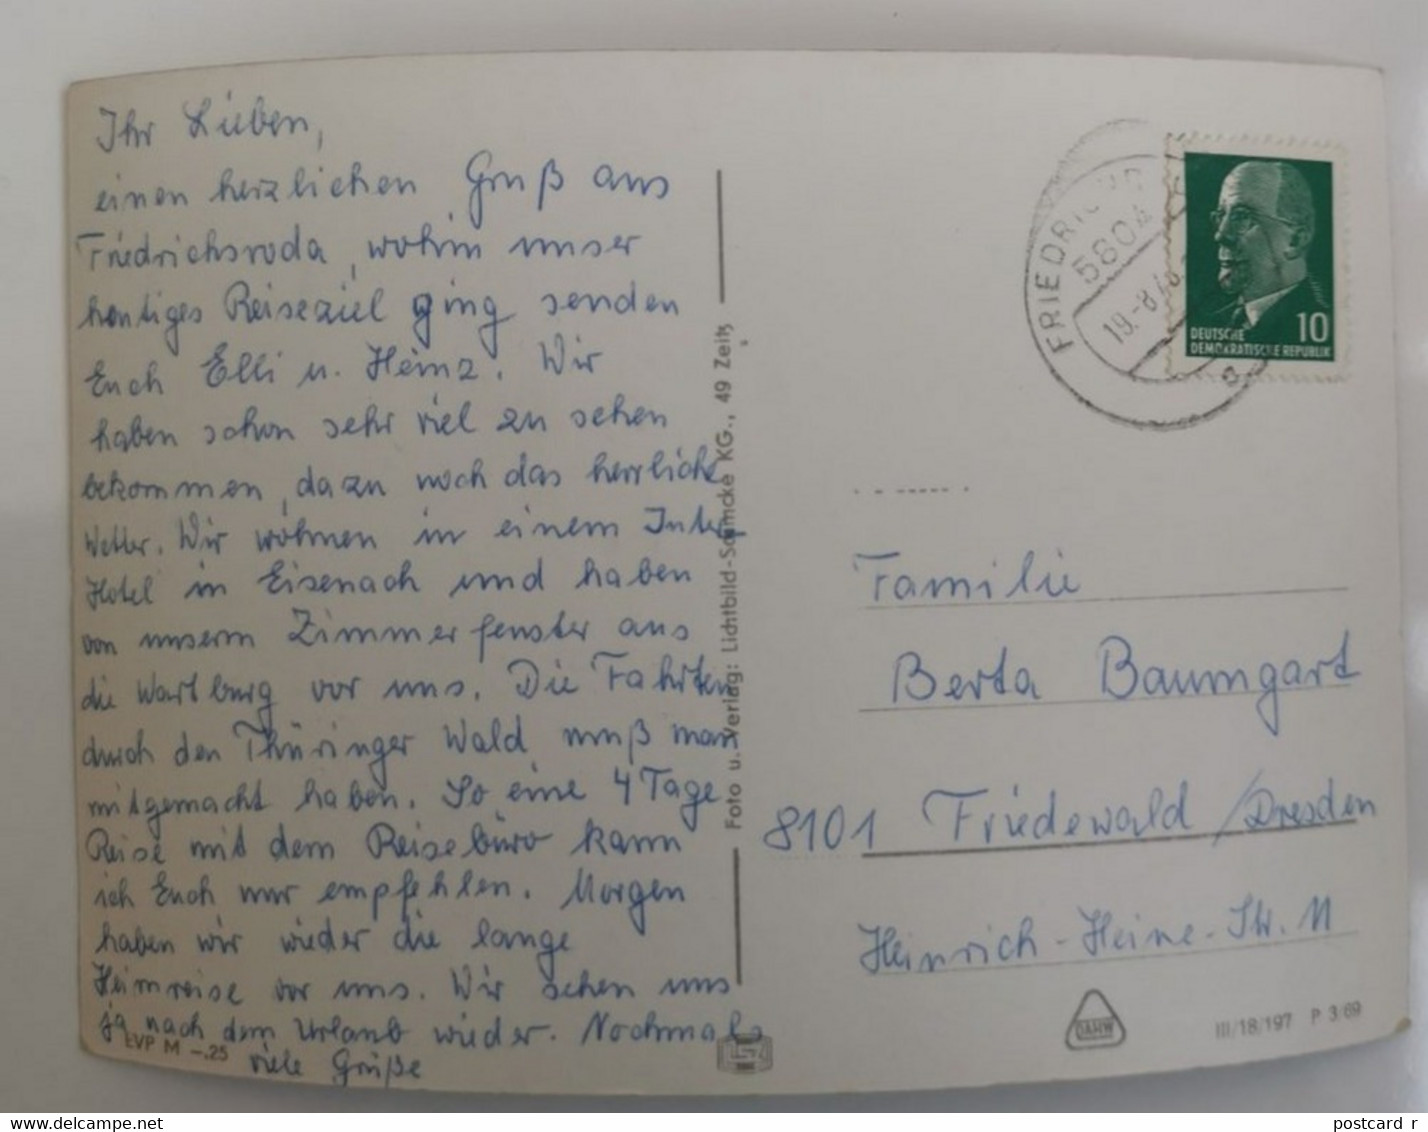 Ihr Lieben,
einen herzlichen Gruß aus
Friedrichsroda, wohin unser
heutiges Reiseziel ging senden
Euch Elli u. Heinz. Wir
haben schon sehr viel zu sehen
bekommen, dazu noch das herrliche
Wetter. Wir wohnen in einem Inter-
Hotel in Eisenach und haben
von unserm Zimmerfenster aus
die Wartburg vor uns. Die Fahrten
durch den Thüringer Wald muß man
mitgemacht haben. So eine 4 Tage
Reise mit dem Reisebüro kann
ich Euch nur empfehlen. Morgen
haben wir wieder die lange
Heimreise vor uns. Wir sehen uns
ja nach dem Urlaub wieder. Nochmals
viele Grüße
EVP M -.25
Foto u. Verlag: Lichtbild-Schincke KG., 49 Zeitz
FRIEDRICHRODA
5804
19.-8.70
DEUTSCHE
DEMOKRATISCHE REPUBLIK
10
Familie
Berta Baumgart
8101 Friedewald /Dresden
Heinrich-Heine-Str. 11
DAHW
III/18/197 P 3/69
www.delcampe.net
postcard_r